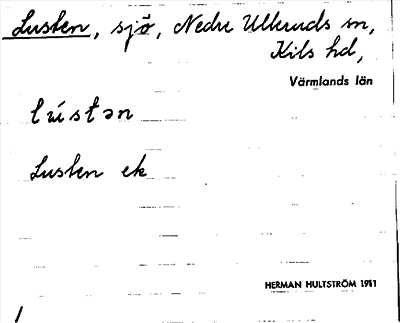 Lusten, sjö, Nedre Ulleruds sn,
Kils hd,
Värmlands län
lústən
Lusten ek
HERMAN HULTSTRÖM 1911
1